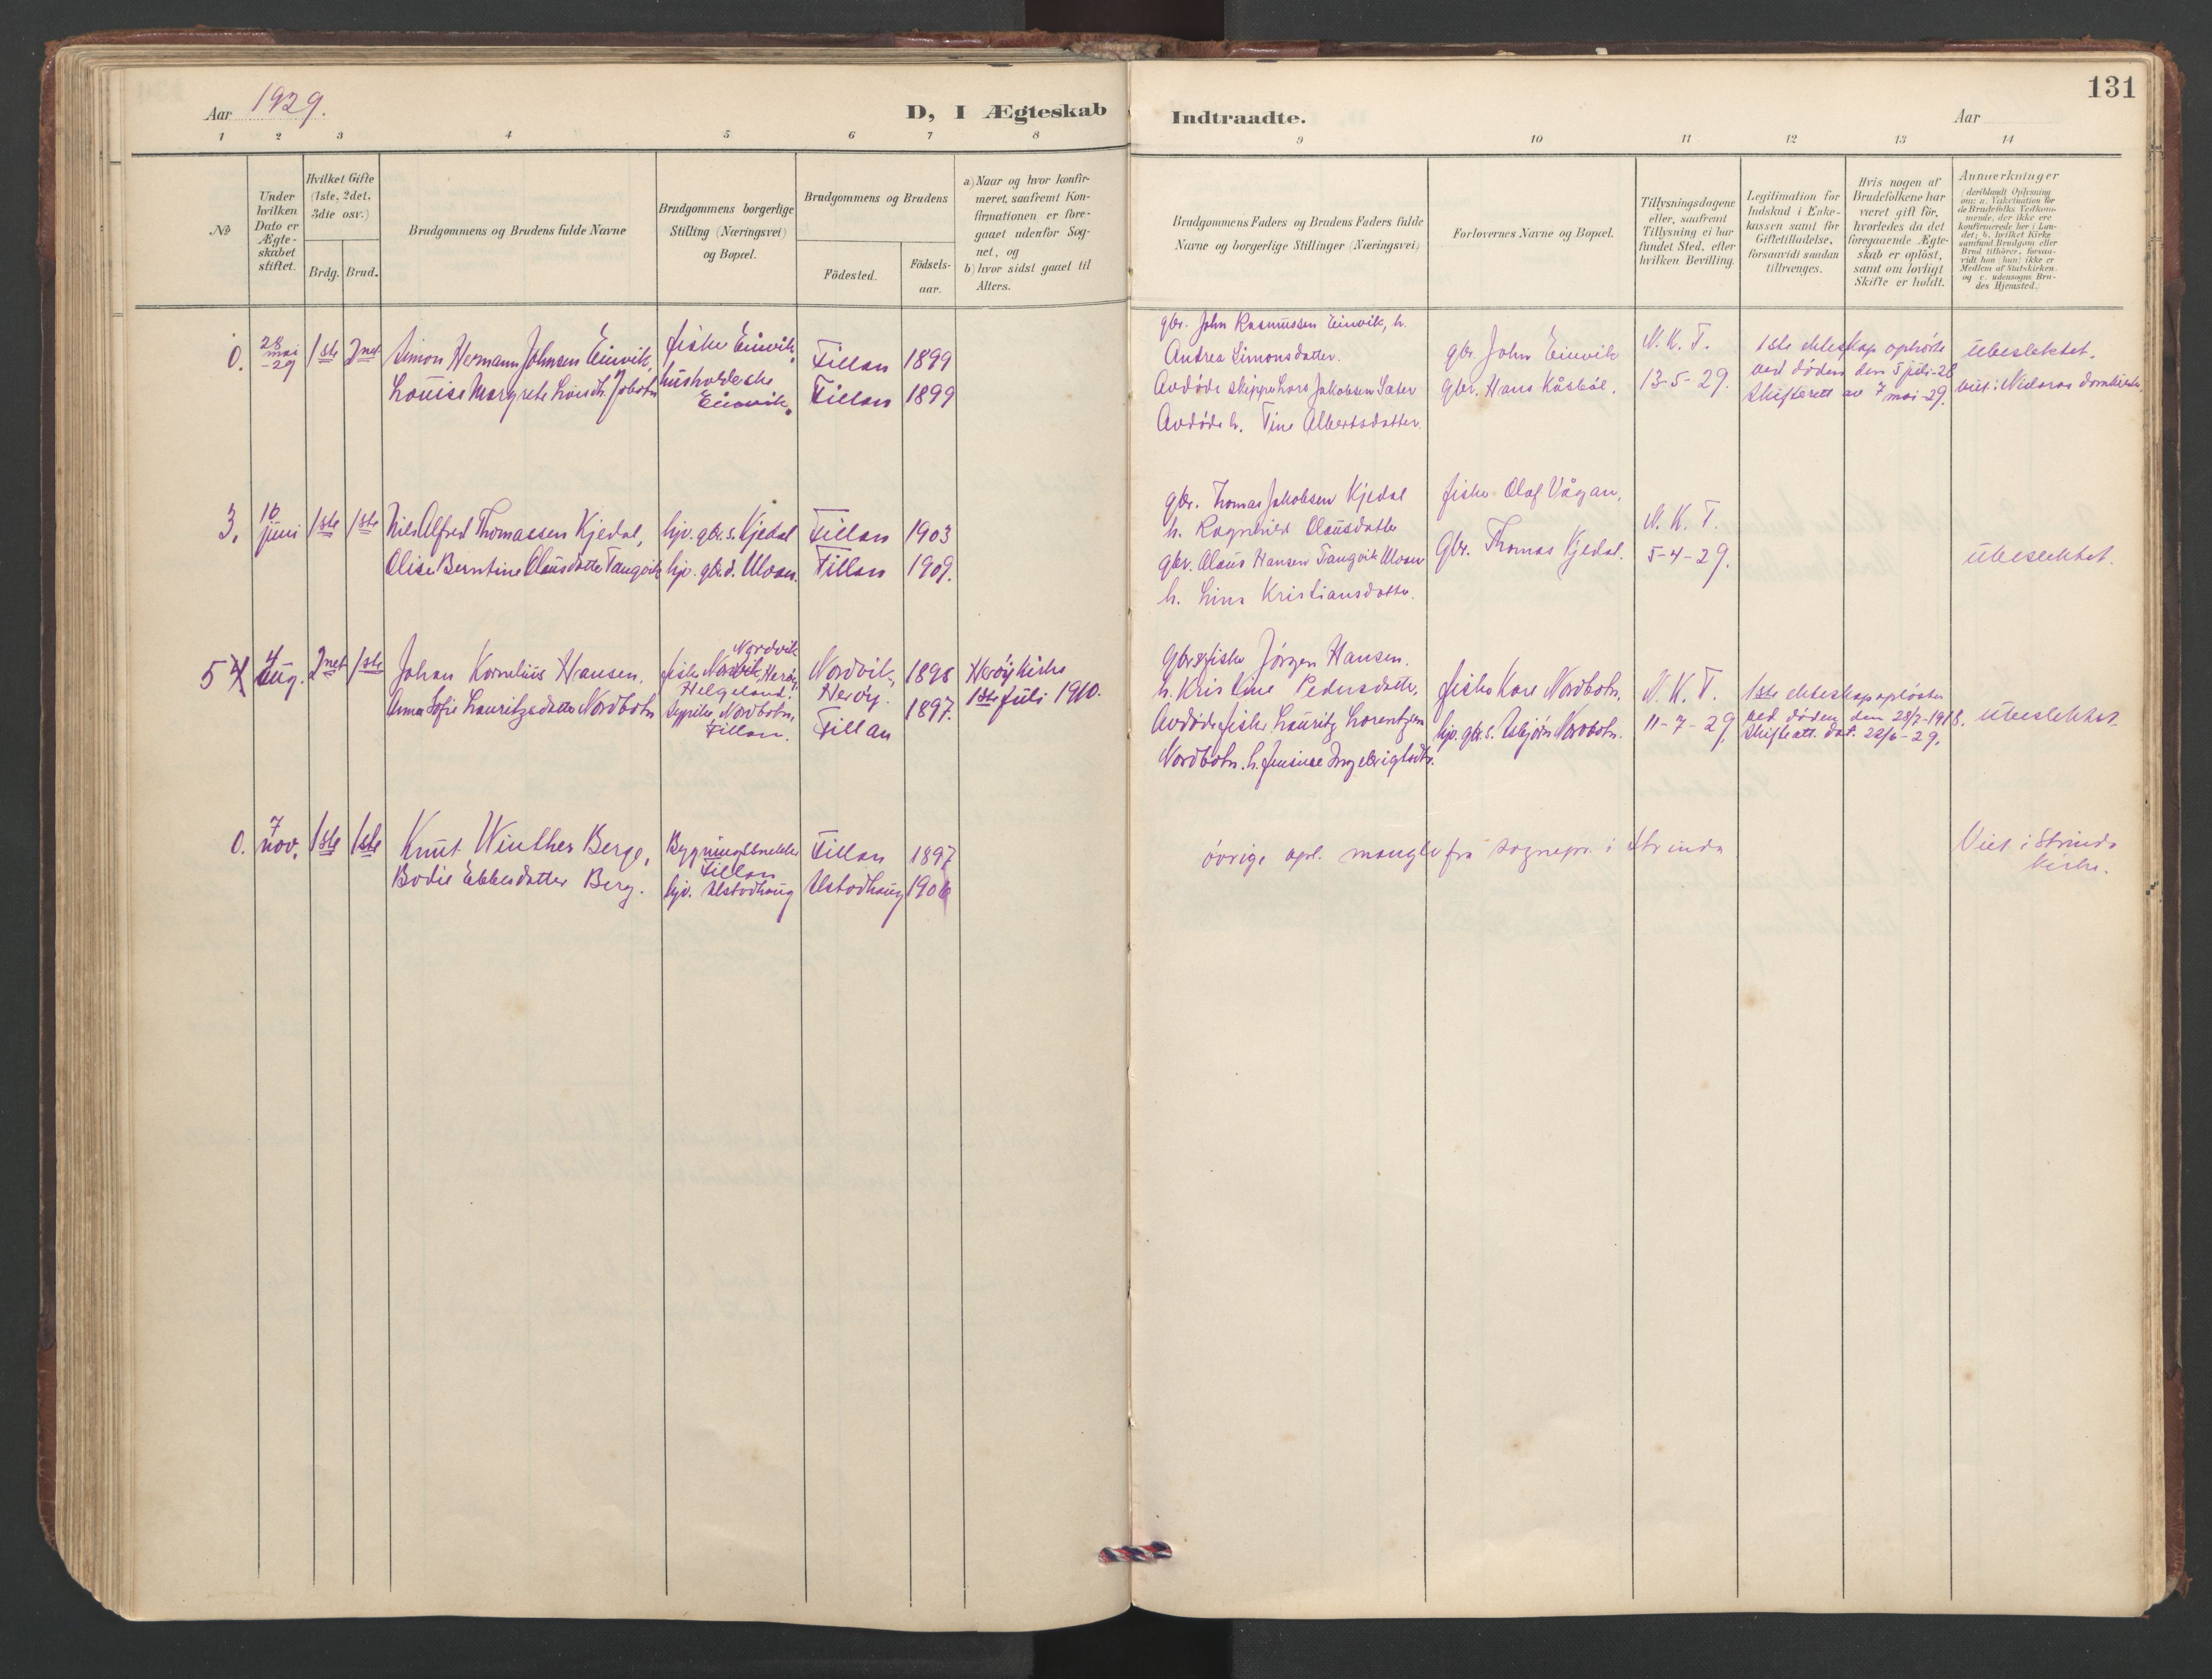 131
Aar 1929.
D, I Ægteskab Indtraadte.
Aar
1 2 3 4 5 6 7 8 9 10 11 12 13 14
No
Under
hvilken
Dato er
Ægte-
skabet
stiftet.
Hvilket Gifte
(1ste, 2det,
3die osv.)
Brdg. Brud.
Brudgommens og Brudens fulde Navne
Brudgommens borgerlige
Stilling (Næringsvei)
og Bopæl.
Brudgommens og Brudens
Födested.
Födsels-
aar.
a) Naar og hvor konfir-
meret, saafremt Kon-
firmationen er fore-
gaaet udenfor Sog-
net, og
b) hvor sidst gaaet til
Alters.
Brudgommens Faders og Brudens Faders fulde
Navne og borgerlige Stillinger (Næringsvei)
Forlovernes Navne og Bopæl.
Tillysningsdagene
eller, saafremt
Tillysning ei har
fundet Sted, efter
hvilken Bevilling.
Legitimation for
Indskud i Enke-
kassen samt for
Giftetilladelse,
forsaavidt saadan
tiltrænges.
Hvis nogen af
Brudefolkene har
været gift för,
hvorledes da det
foregaaende Ægte-
skab er oplöst,
samt om lovligt
Skifte er holdt.
Anmerkninger
(deriblandt Oplysning
om: a. Vakcination for
de Brudefolks Vedkom-
mende, der ikke ere
konfirmerede her i Lan-
det; b. hvilket Kirke
samfund Brudgom eller
Brud tilhörer, forsaa-
vidt han (hun) ikke er
Medlem af Statskirken,
og c. udensogns Bru-
des Hjemsted.)
0. 28 mai -29 1ste 2net
Simon Hermann Johnsen Einvik,
Louise Margrete
fisker Einvik,
husholderske
Einvik.
Fillan 1899
Fillan 1899
gbr. John Rasmussen Einvik, h.
Andrea Simonsdatter.
Avdøde skipper Lars Jakobsen Sæter
Avdøde h. Tine Albertsdatter.
gbr. John Einvik
gbr. Hans Kåsbøl.
N. K. T.
13-5-29.
1ste ekteskap ophørte
ved døden den 5 juli-28
Skifterett av 7 mai-29.
Ubeslektet.
viet i Nidaros domkirke.
3. 16 juni 1ste 1ste
Nils Alfred Thomassen Kjedal,
Olise Berntine Olausdatter Tangvik
hjv. gbr.s. Kjedal
hjv. gbr.d. Ulvan.
Fillan 1903
Fillan 1909.
gbr. Thomas Jakobsen Kjedal
h. Ragnhild Olausdatter
gbr. Olaus Hansen Tangvik Ulvan
h. Lina Kristiansdatter.
fisker Olaf Vågan,
Gbr. Thomas Kjedal.
N. K. T.
5-4-29.
Ubeslektet.
5 4 4 aug. 2net 1ste
Johan Kornelius Hansen.
Anna Sofie Lauritzsdatter Nordbotn
Nordvik
fisker Nordvik, Herøy
Helgeland.
Sypike, Nordbotn,
Fillan.
Nordvik, 1898
Herøy.
1897.
Fillan
Herøy kirke
1ste juli 1910.
Gbr & fisker Jörgen Hansen.
h. Kristine Pedersdatter,
Avdøde fisker Lauritz Lorentzen
Nordbotn. h. Jensine Ingebrigtsdtr.
fisker Kare Nordbotn,
hjv. gbr.s. Asbjørn Nordbotn.
N. K. T.
11-7-29.
1ste ekteskap opløstes
ved døden den 28/7-1918.
Skifteatt. dat. 22/6-29.
Ubeslektet
0. 7 nov. 1ste 1ste
Knut Winther Berge,
Bodil Ebbesdatter Berg.
Bygningssnekker
Fillan
hjv. Alstadhaug
Fillan 1897
Alstadhaug 1906
övrige opl. mangler fra sognepr. i Strinda
Viet i Strinda
kirke.